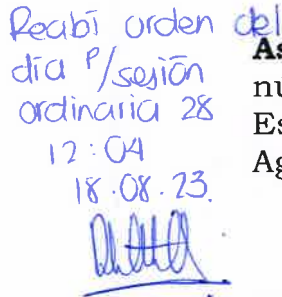 Recibí orden del
día P/sesión
ordinaria 28
12:04
18.08.23.
As
nu
Es
Ag